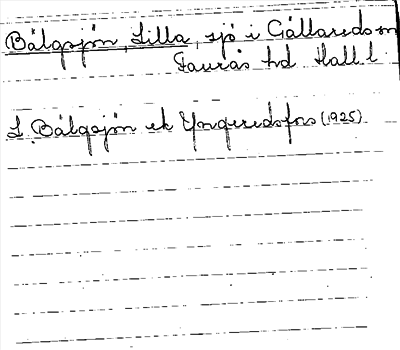 Bälgsjön, Lilla, sjö i Gällareds sn
Faurås hd Hall. l.
L. Bälgsjön ek Yngeredsfors (1925)